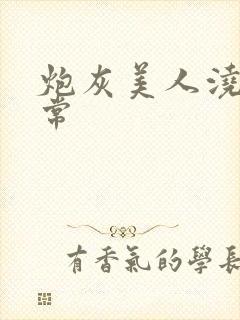 炮灰美人澆
常
有香氣的學長